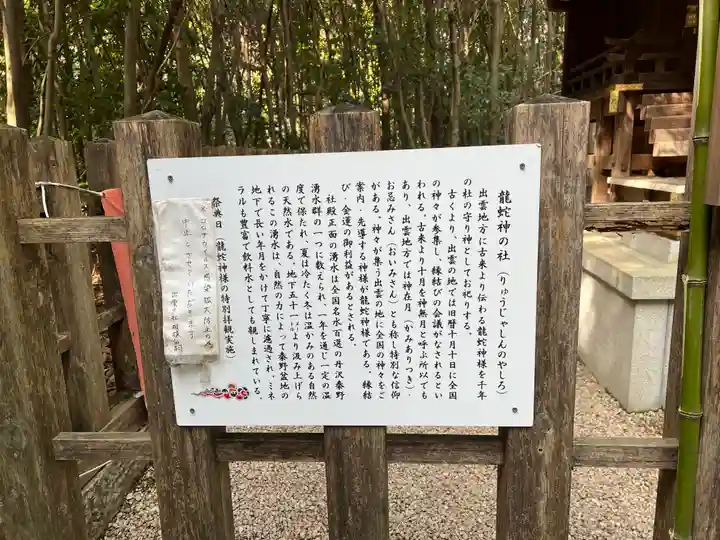 龍蛇神の社（りゅうじゃしんのやしろ）
出雲地方に古来より伝わる龍蛇神様を千年
の社の守り神としてお祀りする。
古くより、出雲の地では旧暦十月十日に全国
の神々が参集し、縁結びの会議がなされるとい
われる。古来より十月を神無月と呼ぶ所以でも
あり、出雲地方では神在月（かみありつき）・
お忌みさん（おいみさん）とも称し特別な信仰
がある。神々が集う出雲の地に全国の神々をご
案内、先導する神様が龍蛇神様である。縁結
び・金運の御利益があるとされる。
社殿正面の湧水は全国名水百選の丹沢秦野
湧水群の一つに数えられ、一年を通じ一定の温
度で保たれ、夏は冷たく冬は温かみのある自然
の天然水である。地下五十㍍より汲み上げら
れるこの湧水は、自然の力によって秦野盆地の
地下で長い年月をかけて丁寧に濾過され、ミネ
ラルも豊富で飲料水としても親しまれている。
祭典日（龍蛇神様の特別拝観実施）
コロナウイルス感染拡大防止の為
中止
出雲大社相模分祠